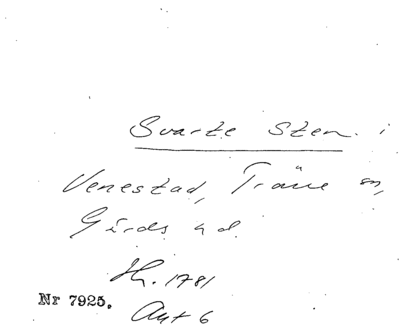 Svarte Sten. i
Venestad, Träne sn,
Gärds hd.
Hz. 1781
Nr 7925.
Akt 6